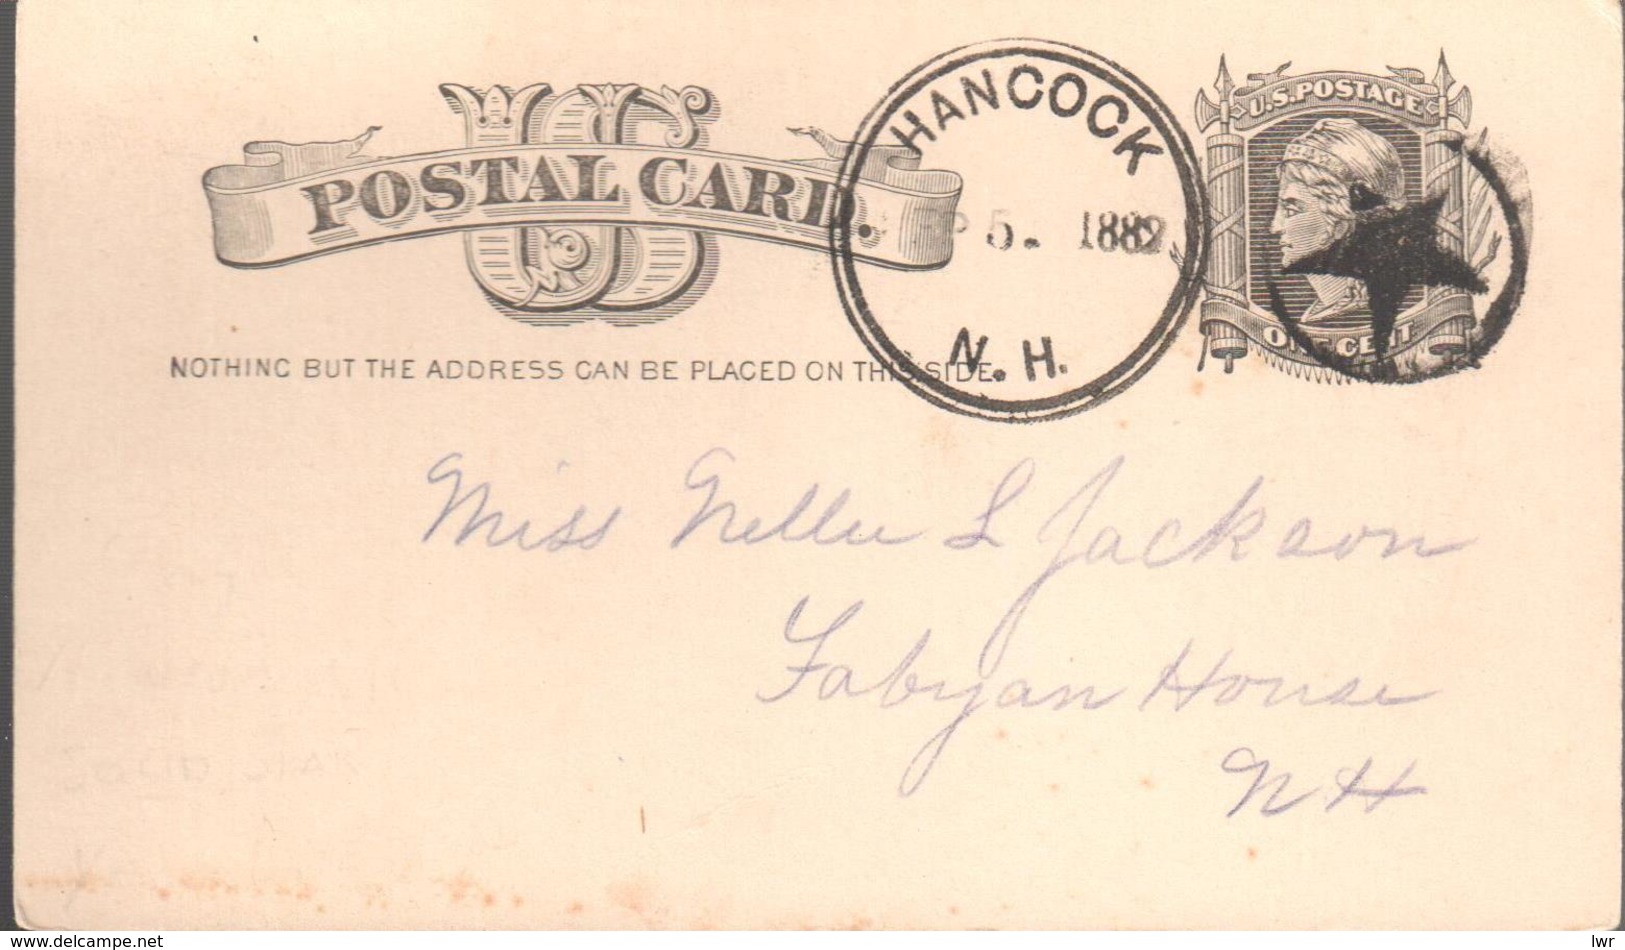 US
POSTAL CARD.
HANCOCK
5. 1882
N.H.
U.S. POSTAGE
ONE CENT
NOTHING BUT THE ADDRESS CAN BE PLACED ON THIS SIDE.
Miss Nellie L Jackson
Fabyan House
NH
SOLID STAR
www.delcampe.net
lwr